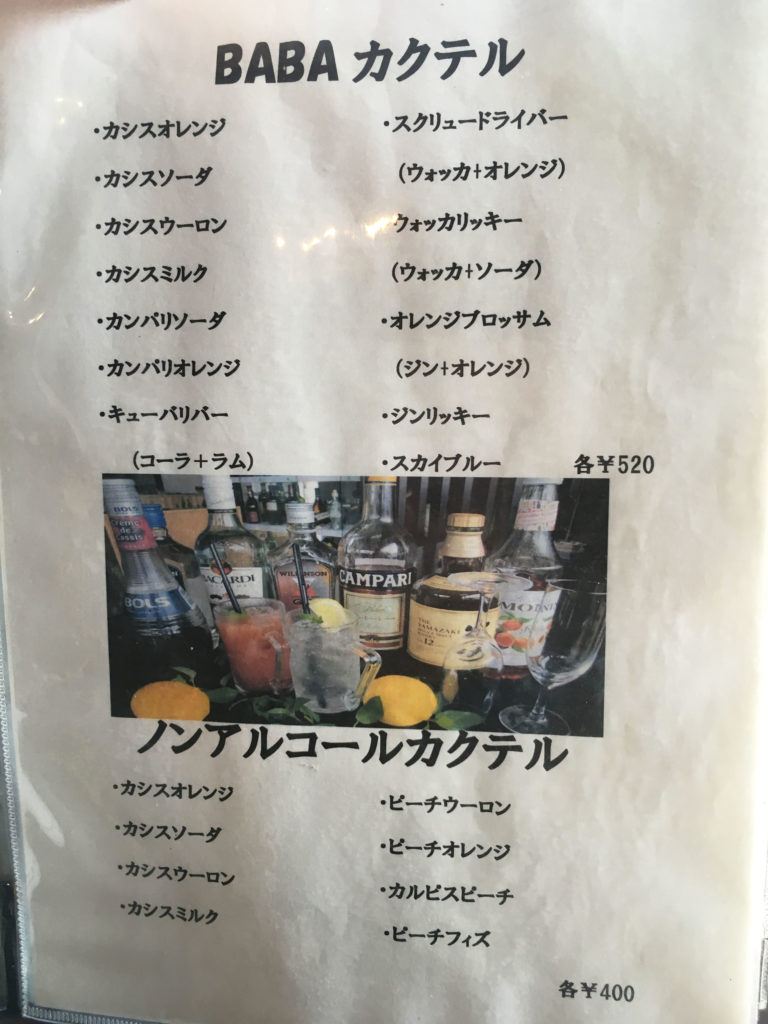 BABA カクテル
・カシスオレンジ
・カシスソーダ
・カシスウーロン
・カシスミルク
・カンパリソーダ
・カンパリオレンジ
・キューバリバー
(コーラ＋ラム)
・スクリュードライバー
(ウォッカ+オレンジ)
ウォッカリッキー
(ウォッカ+ソーダ)
・オレンジブロッサム
(ジン+オレンジ)
・ジンリッキー
・スカイブルー
各￥520
BOLS
Crème de Cassis
BOLS
BACARDI
WILKINSON
CAMPARI
THE YAMAZAKI
12
MONIN
ノンアルコールカクテル
・カシスオレンジ
・カシスソーダ
・カシスウーロン
・カシスミルク
・ピーチウーロン
・ピーチオレンジ
・カルピスピーチ
・ピーチフィズ
各￥400